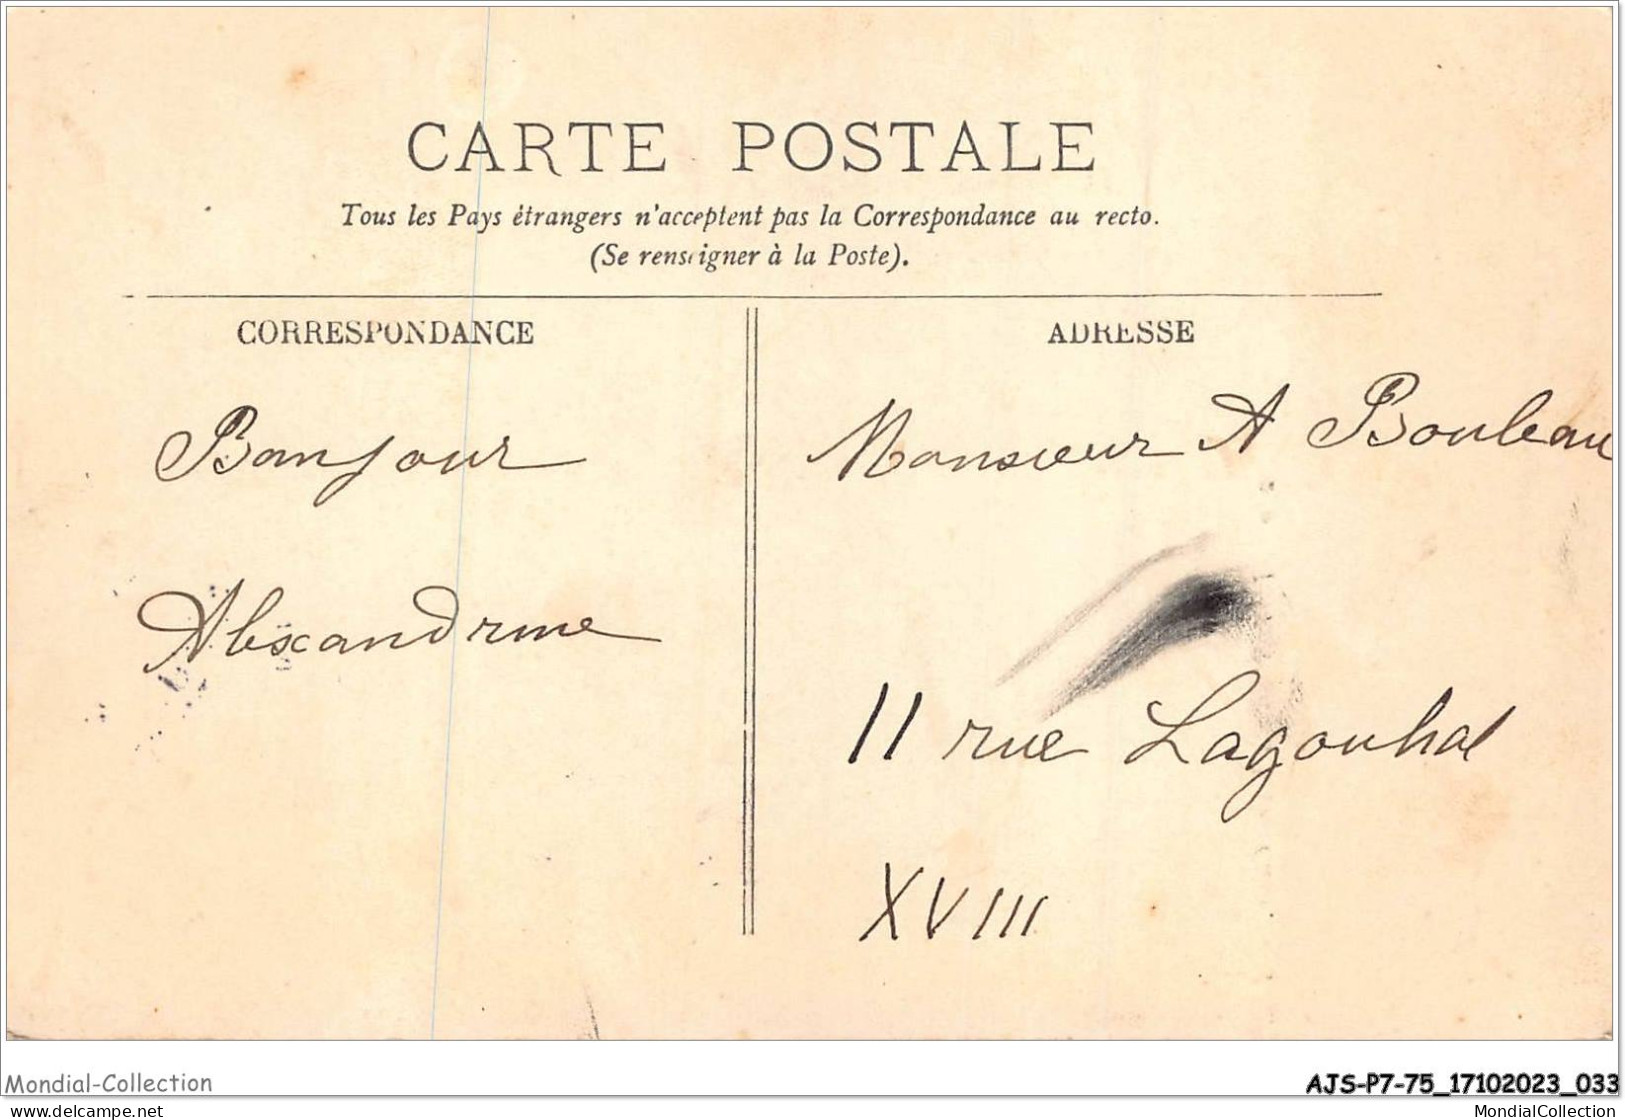 CARTE POSTALE
Tous les Pays étrangers n'acceptent pas la Correspondance au recto.
(Se renseigner à la Poste).
CORRESPONDANCE
ADRESSE
Bonjour
Alexandrine
Monsieur A Bouleau
11 rue Lagouhat
XVIII
Mondial-Collection
AJS-P7-75_17102023_033
delcampe.net
MondialCollection